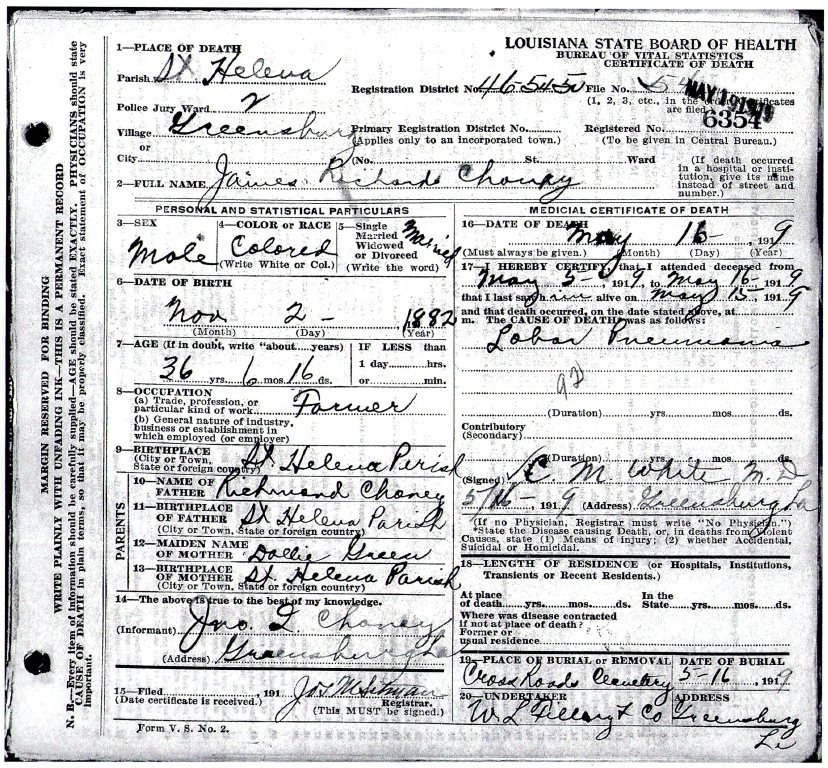 LOUISIANA STATE BOARD OF HEALTH
BUREAU OF VITAL STATISTICS
CERTIFICATE OF DEATH
1—PLACE OF DEATH
Parish St. Helena
Registration District No. 46-545 File No.
(1, 2, 3, etc., in the order certificates are filed.)
MAY 191919
6354
Police Jury Ward 2
Village Greensburg
or
City
Primary Registration District No. Registered No.
(Applies only to an incorporated town.) (To be given in Central Bureau.)
(No. St. Ward (If death occurred in a hospital or institution, give its name instead of street and number.)
2—FULL NAME James Richard Choney
PERSONAL AND STATISTICAL PARTICULARS
3—SEX
Male
4—COLOR OR RACE
Colored
(Write White or Col.)
5—Single
Married
Widowed
or Divorced
Married
(Write the word)
6—DATE OF BIRTH
Nov 2 - 1882
(Month) (Day) (Year)
7—AGE (If in doubt, write "about....years)
36 yrs. 6 mos. 16 ds.
IF LESS than
1 day hrs.
or min.
8—OCCUPATION
(a) Trade, profession, or
particular kind of work Farmer
(b) General nature of industry,
business or establishment in
which employed (or employer)
9—BIRTHPLACE
(City or Town,
State or foreign country) St. Helena Perish
PARENTS
10—NAME OF
FATHER Richmond Choney
11—BIRTHPLACE
OF FATHER St Helena Parish
(City or Town, State or foreign country)
12—MAIDEN NAME
OF MOTHER Dollie Green
13—BIRTHPLACE
OF MOTHER St. Helena Parish
(City or Town, State or foreign country)
14—The above is true to the best of my knowledge.
(Informant) Jno. Choney
(Address) Greensburg La
15—Filed , 191
(Date certificate is received.)
Jos M Sitman
Registrar.
(This MUST be signed.)
Form V. S. No. 2.
MEDICAL CERTIFICATE OF DEATH
16—DATE OF DEATH
May 16 - 1919
(Must always be given.) (Month) (Day) (Year)
17—I HEREBY CERTIFY that I attended deceased from
May 5 - 1919 to May 16 - 1919
that I last saw him alive on May 15 - 1919
and that death occurred, on the date stated above, at
m. The CAUSE OF DEATH was as follows:
Lobar Pneumonia
92
(Duration) yrs. mos. ds.
Contributory
(Secondary)
(Duration) yrs. mos. ds.
(Signed) C M White M D
5/16 - 1919 (Address) Greensburg La
(If no Physician, Registrar must write "No Physician.")
*State the Disease causing Death, or, in deaths from Violent
Causes, state (1) Means of injury; (2) whether Accidental,
Suicidal or Homicidal.
18—LENGTH OF RESIDENCE (or Hospitals, Institutions,
Transients or Recent Residents.)
At place In the
of death yrs. mos. ds. State yrs. mos. ds.
Where was disease contracted
if not at place of death?
Former or
usual residence
19—PLACE OF BURIAL or REMOVAL DATE OF BURIAL
Cross Roads Cemetery 5-16 1919
20—UNDERTAKER ADDRESS
W. L & Co Greensburg
La
MARGIN RESERVED FOR BINDING
WRITE PLAINLY WITH UNFADING INK—THIS IS A PERMANENT RECORD
N. B.—Every item of information should be carefully supplied—AGE should be stated EXACTLY. PHYSICIANS should state
CAUSE OF DEATH in plain terms, so that it may be properly classified. Exact statement of OCCUPATION is very
important.